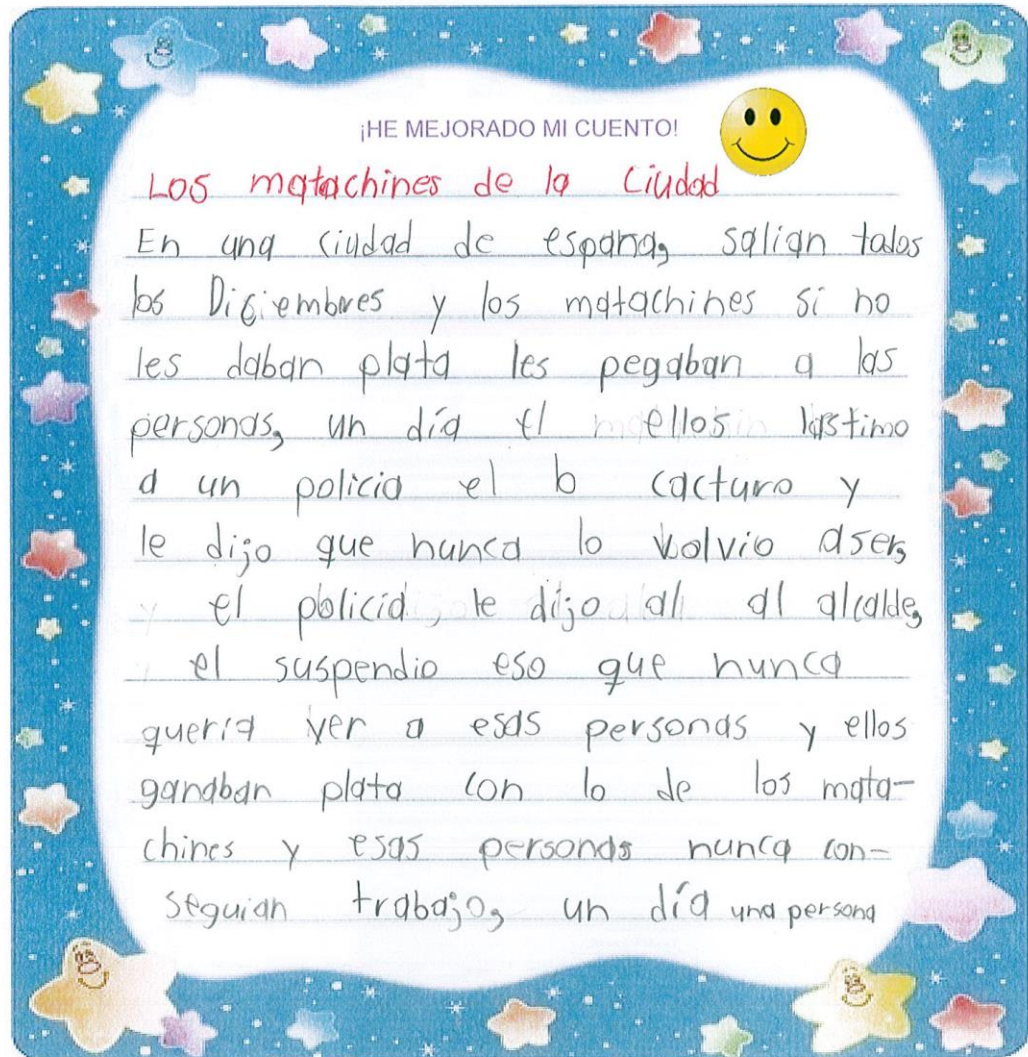 ¡HE MEJORADO MI CUENTO!
Los matachines de la Ciudad
En una ciudad de espana, salian todos
los Diciembres y los matachines si no
les daban plata les pegaban a las
personas, un día el ellos lastimo
a un policia el lo cacturo y
le dijo que nunca lo volvio aser,
y el policia, le dijo al al alcalde,
el suspendio eso que nunca
quería ver a esas personas y ellos
ganaban plata con lo de los mata-
chines y esas personas nunca con-
seguian trabajo, un día una persona